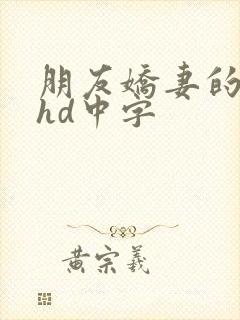 朋友嬌妻的
hd中字
黄宗羲